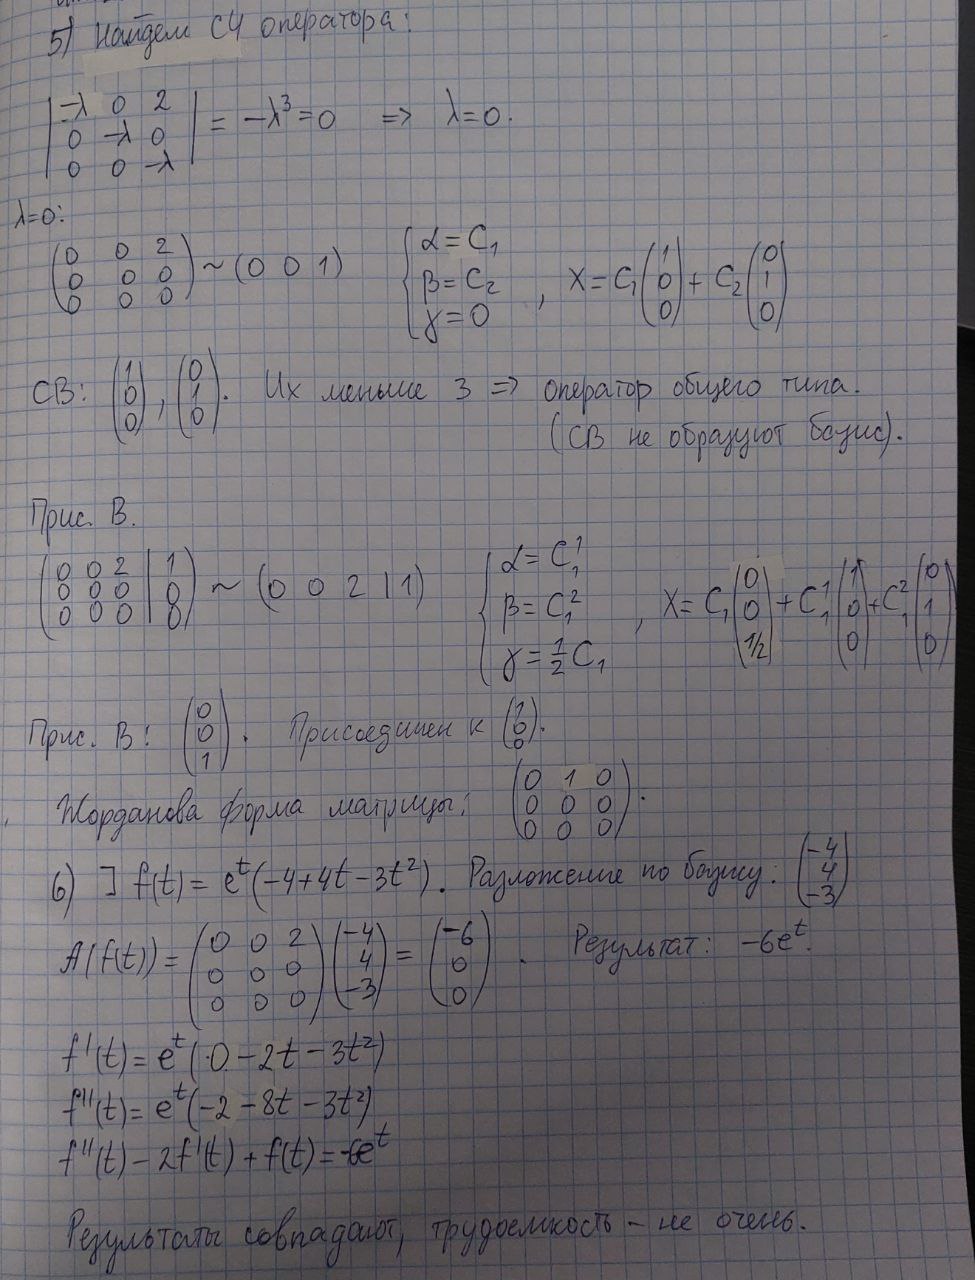 5) Найдем СЧ оператора:
|-λ 0 2|
|0 -λ 0| = -λ³ = 0 => λ=0.
|0 0 -λ|
λ=0:
(0 0 2; 0 0 0; 0 0 0) ~ (0 0 1) { α = C₁; β = C₂; γ = 0 , X = C₁(1; 0; 0) + C₂(0; 1; 0)
СВ: (1; 0; 0), (0; 1; 0). Их меньше 3 => оператор общего типа.
(СВ не образуют базис).
Прис. В.
(0 0 2 | 1; 0 0 0 | 0; 0 0 0 | 0) ~ (0 0 2 | 1) { α = C₁¹; β = C₁²; γ = ½ C₁ , X = C₁(0; 0; 1/2) + C₁¹(1; 0; 0) + C₁²(0; 1; 0)
Прис. В: (0; 0; 1). Присоединен к (1; 0; 0).
Жорданова форма матрицы: (0 1 0; 0 0 0; 0 0 0).
6) ] f(t) = eᵗ(-4+4t-3t²). Разложение по базису: (-4; 4; -3)
A(f(t)) = (0 0 2; 0 0 0; 0 0 0)(-4; 4; -3) = (-6; 0; 0). Результат: -6eᵗ.
f'(t) = eᵗ(0 - 2t - 3t²)
f''(t) = eᵗ(-2 - 8t - 3t²)
f''(t) - 2f'(t) + f(t) = -6eᵗ
Результаты совпадают, трудоемкость - не очень.